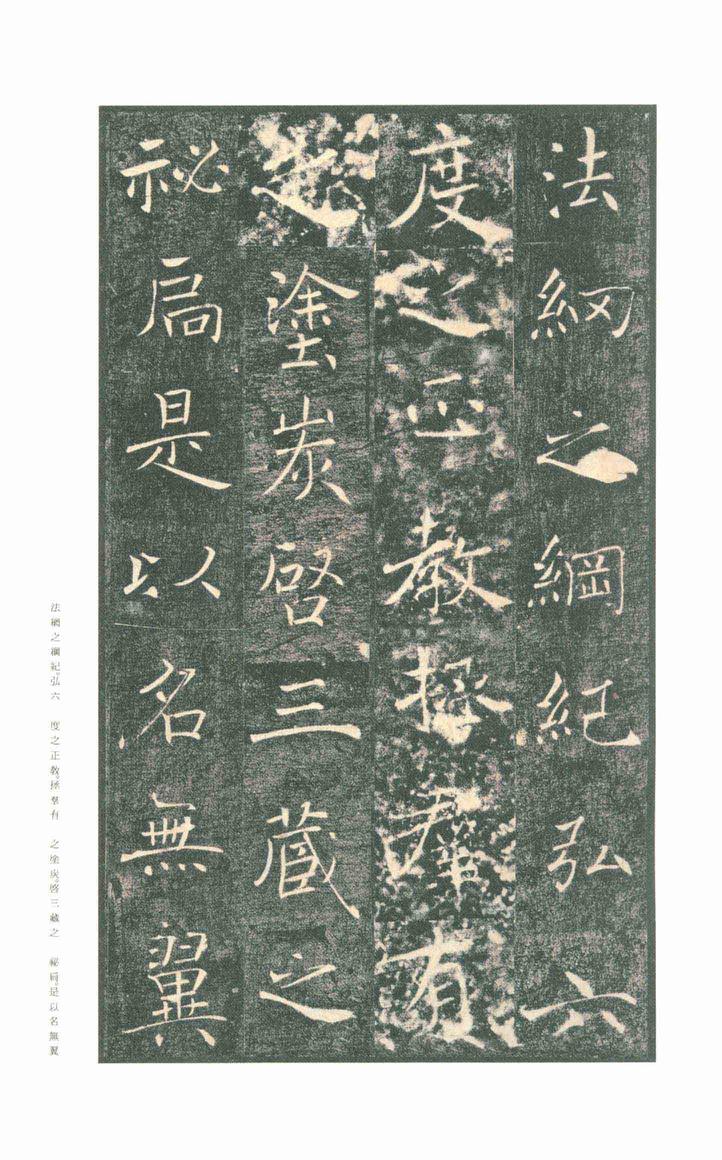 法網之綱紀弘六
度之正教拯群有
之塗炭啓三藏之
祕扃是以名無翼
法網之綱紀。弘六　度之正教。拯羣有　之塗炭。啓三藏之　祕扃。是以名無翼